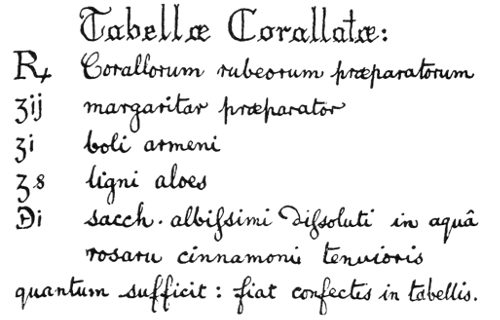 Tabellæ Corallatæ:
℞ Corallorum rubeorum præparatorum
ʒij margaritar præparator
ʒi boli armeni
ʒs ligni aloes
℈i sacch. albissimi dissoluti in aquâ
rosaru cinnamoni tenuioris
quantum sufficit: fiat confectes in tabellis.